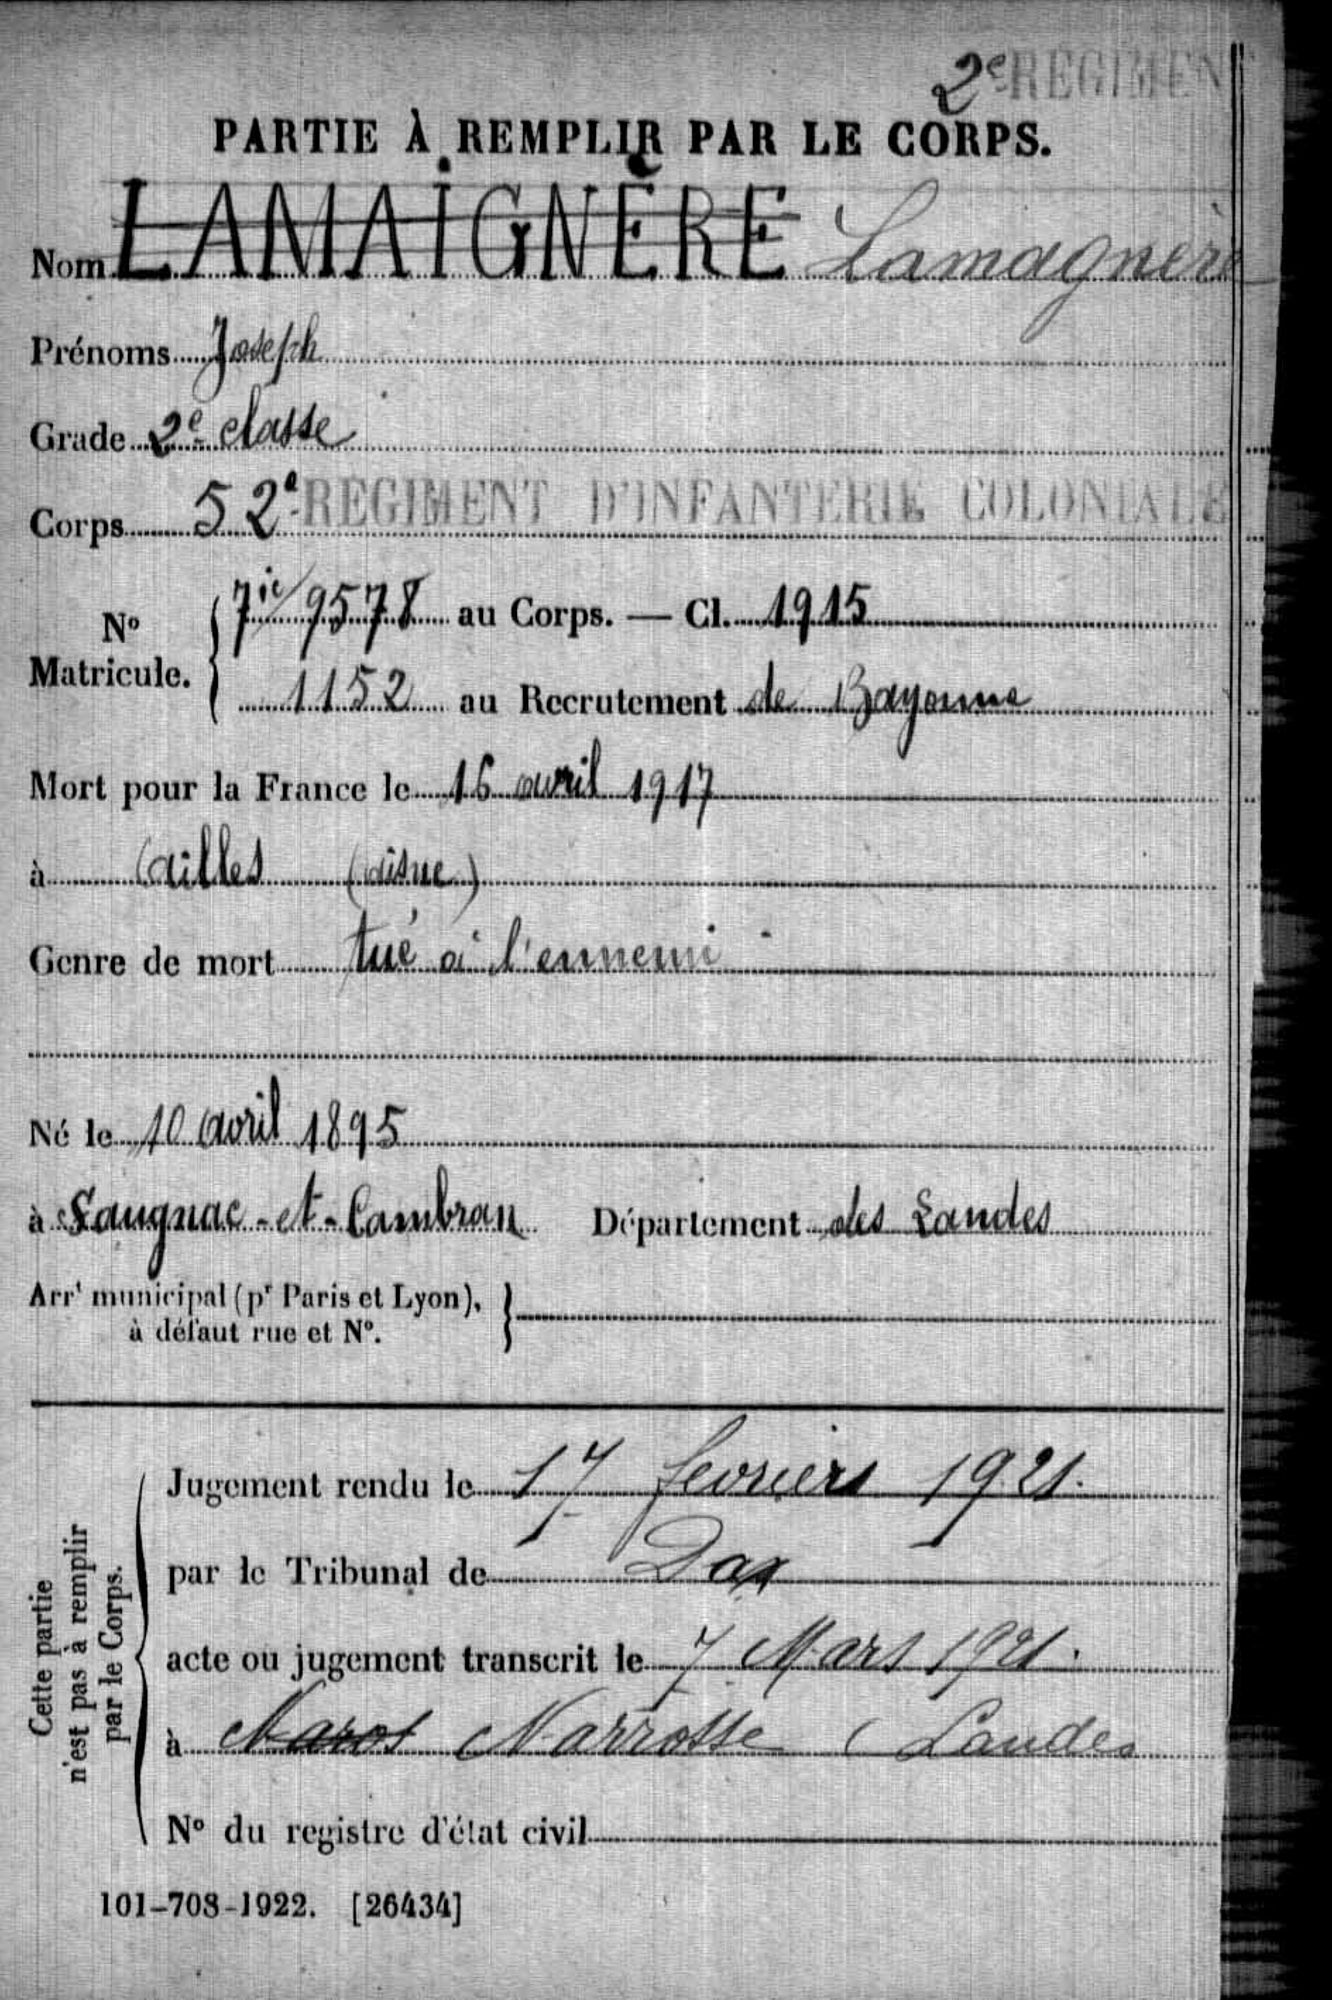 2e REGIMEN
PARTIE À REMPLIR PAR LE CORPS.
Nom LAMAIGNÈRE Lamagnère
Prénoms Joseph
Grade 2e classe
Corps 52e REGIMENT D'INFANTERIE COLONIALE
No Matricule. { 7ic/9578 au Corps. — Cl. 1915
1152 au Recrutement de Bayonne
Mort pour la France le 16 avril 1917
à Ailles (aisne)
Genre de mort tué à l'ennemi
Né le 10 avril 1895
à Saugnac-et-Cambran Département des Landes
Arrt municipal (pr Paris et Lyon), }
à défaut rue et No.
Cette partie
n'est pas à remplir
par le Corps.
Jugement rendu le 17 fevriers 1921.
par le Tribunal de Dax
acte ou jugement transcrit le 7 Mars 1921.
à Naros Narrosse (Landes
No du registre d'état civil
101-708-1922. [26434]